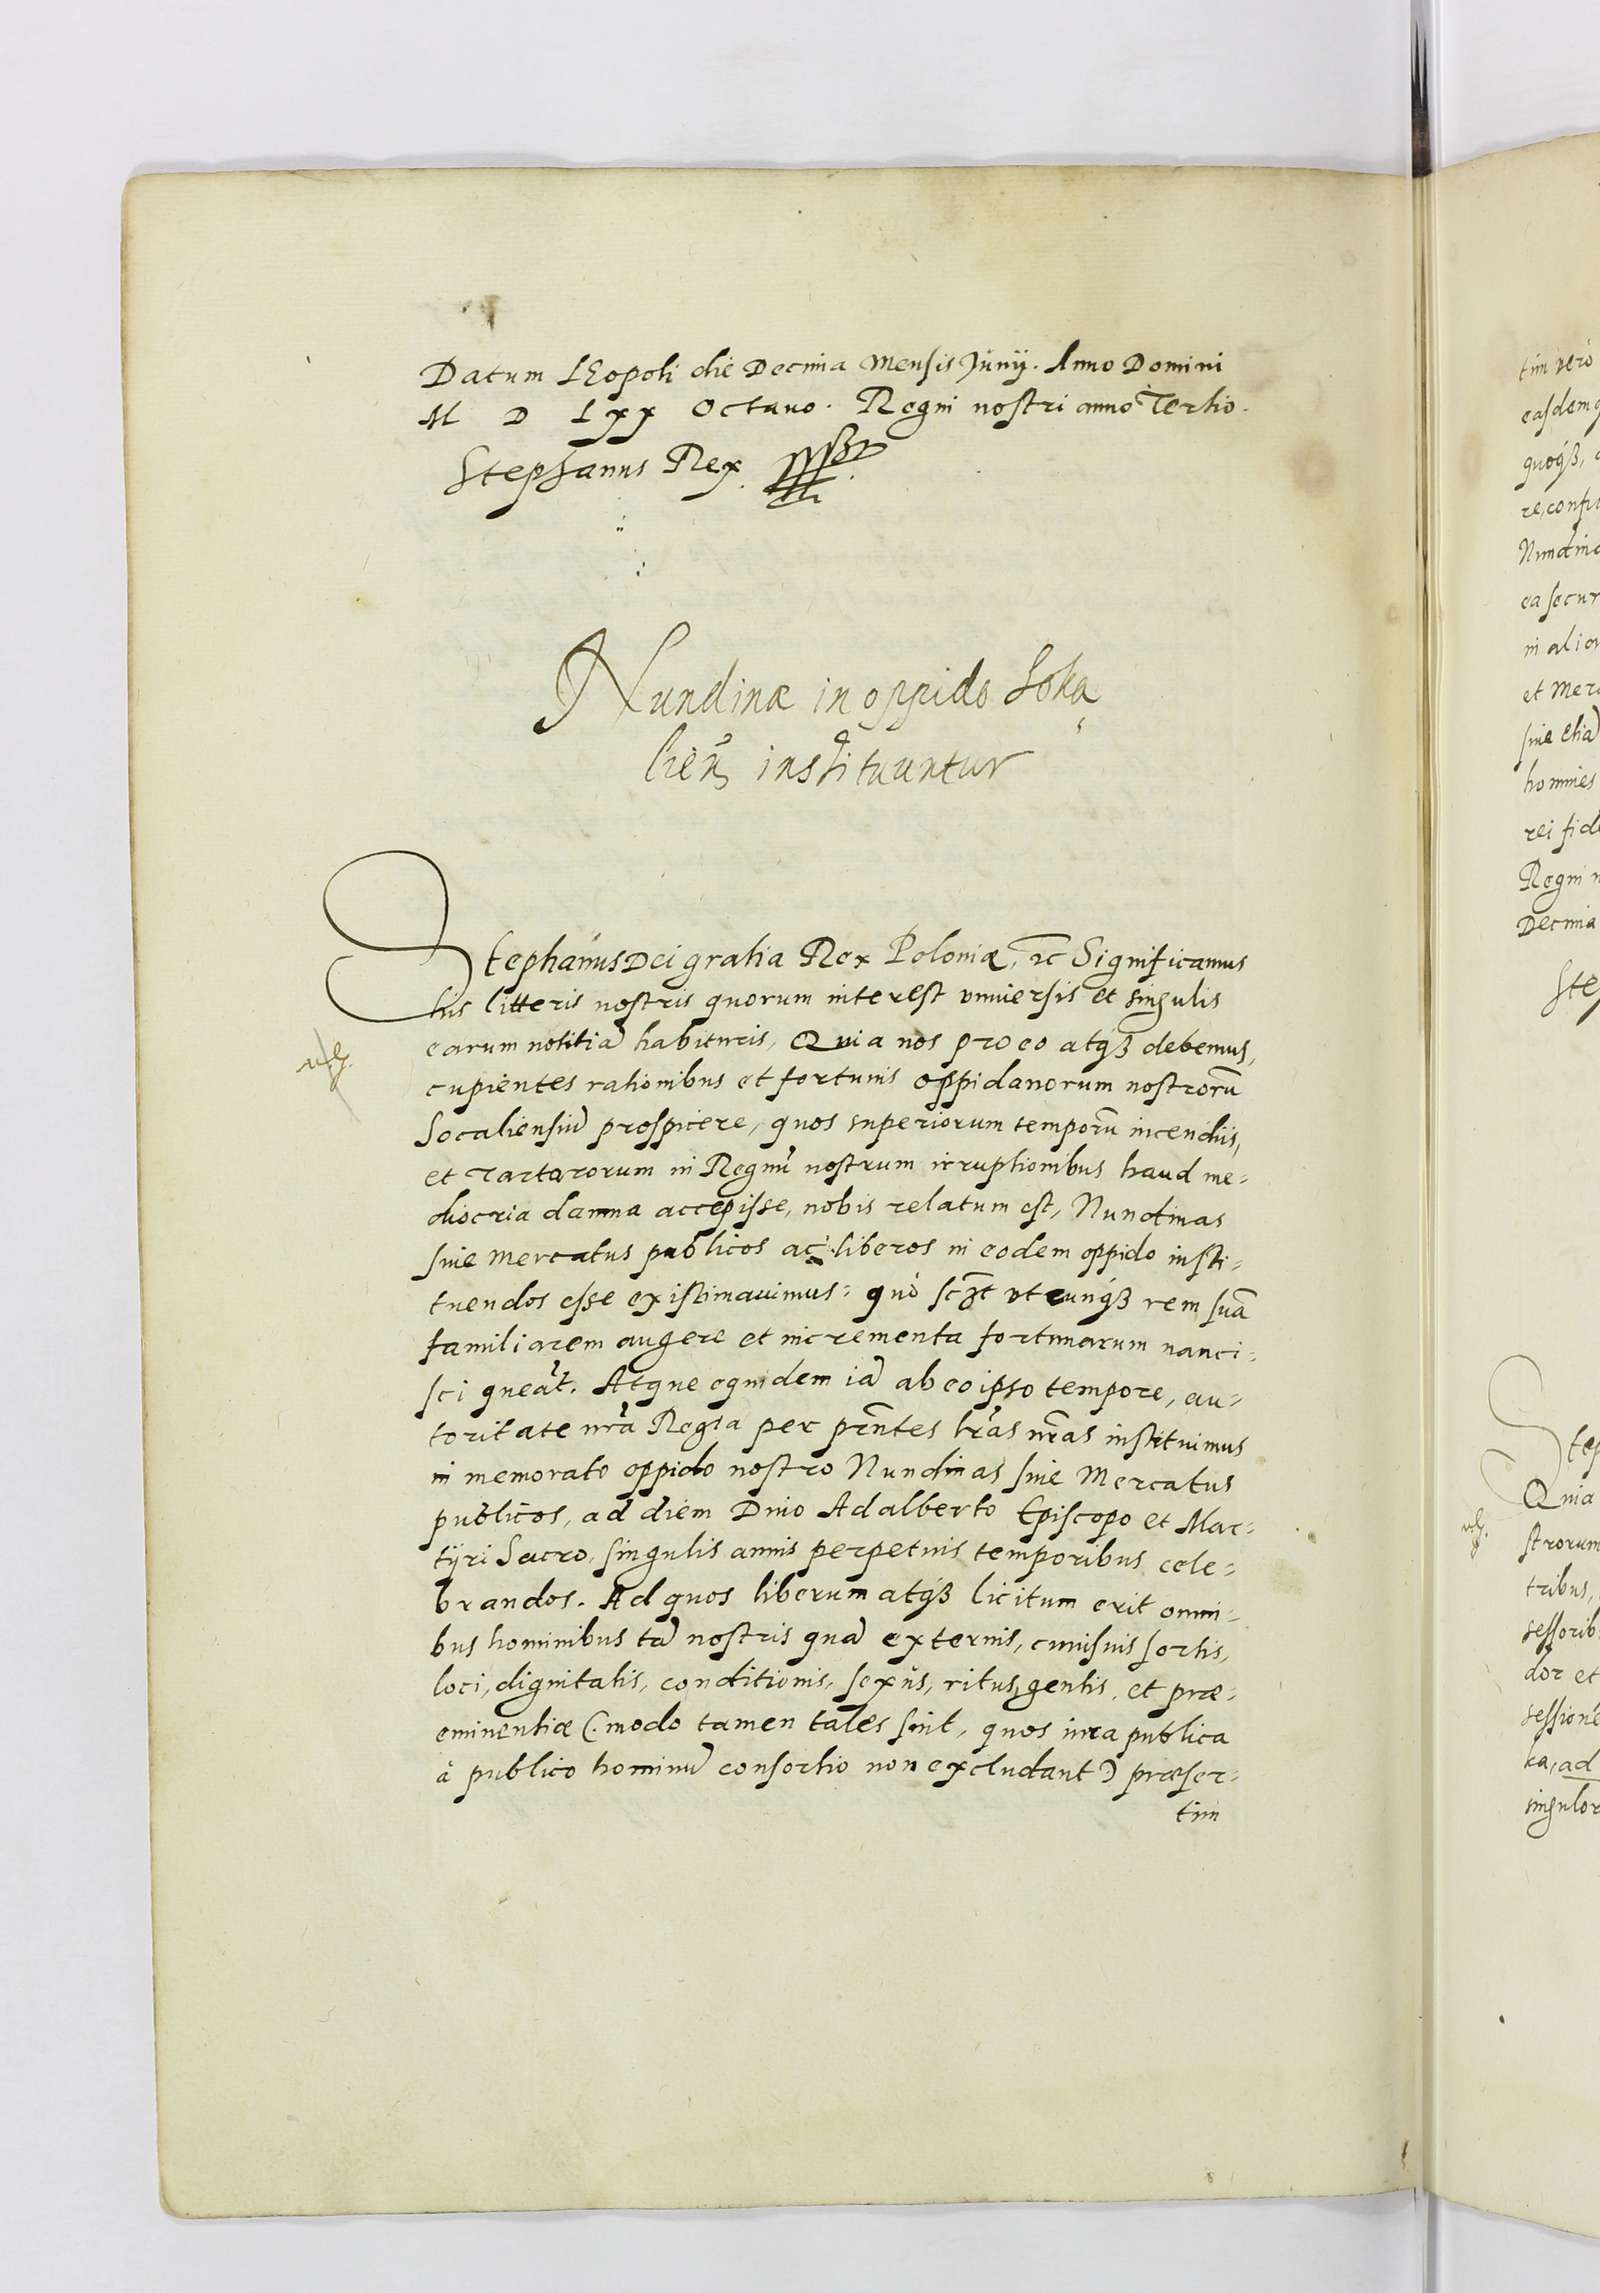 Datum LEopoli die Decima Mensis Junij. Anno Domini
M D Lxx Octauo. Regni nostri anno Tertio.
Stephanus Rex.
Nundinæ in oppido Soka
lien̄ instituuntur
Stephanus Dei gratia Rex Poloniæ, ꝛc Significamus
his litteris nostris quorum interest vniuersis et singulis
earum notitiã habituris, Quia nos pro eo atqꝫ debemus,
cupientes rationibus et fortunis oppidanorum nostrorũ
Socaliensiũ prospicere, quos superiorum temporũ incendiis,
et Tartarorum in Regnũ nostrum irruptionibus haud me-
diocria damna accepisse, nobis relatum est, Nundinas
siue Mercatus publicos ac liberos in eodem oppido insti-
tuendos esse existimauimus: quò scꝫt vtcunqꝫ rem suã
familiarem augere et incrementa fortunarum nanci-
sci queãt. Atque equidem iã ab eo ipso tempore, au-
toritate nr̃a Regia per pñtes lr̃as nr̃as instituimus
in memorato oppido nostro Nundinas siue Mercatus
publicos, ad diem Diuo Adalberto Episcopo et Mar-
tyri Sacro, singulis annis perpetuis temporibus cele-
brandos. Ad quos liberum atqꝫ licitum erit omni-
bus hominibus tã nostris quã externis, cuiusuis sortis,
loci, dignitatis, conditionis, sexus, ritus, gentis, et præ-
eminentiæ (modo tamen tales sint, quos iura publica
à publico hominũ consortio non excludant) præser-
tim
tim verò
easdemq
quoqꝫ,
Nundina
ea secur
in alior
et Merc
siue etiã
homines
rei fide
Regni n
Decima
Step
Step
Quia
strorum
tribus,
sessorib
dor et
sessione
ka, ad
singulor